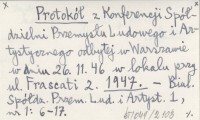 Protokół z Konferencji Spół-
dzielni Przemysłu Ludowego i Ar-
tystycznego odbytej w Warszawie
w dniu 26.11.46 w lokalu przy
ul. Frascati 2. 1947. – Biul.
Spółdz. Przem. Lud. i Artyst. 1,
nr 1: 6-17.